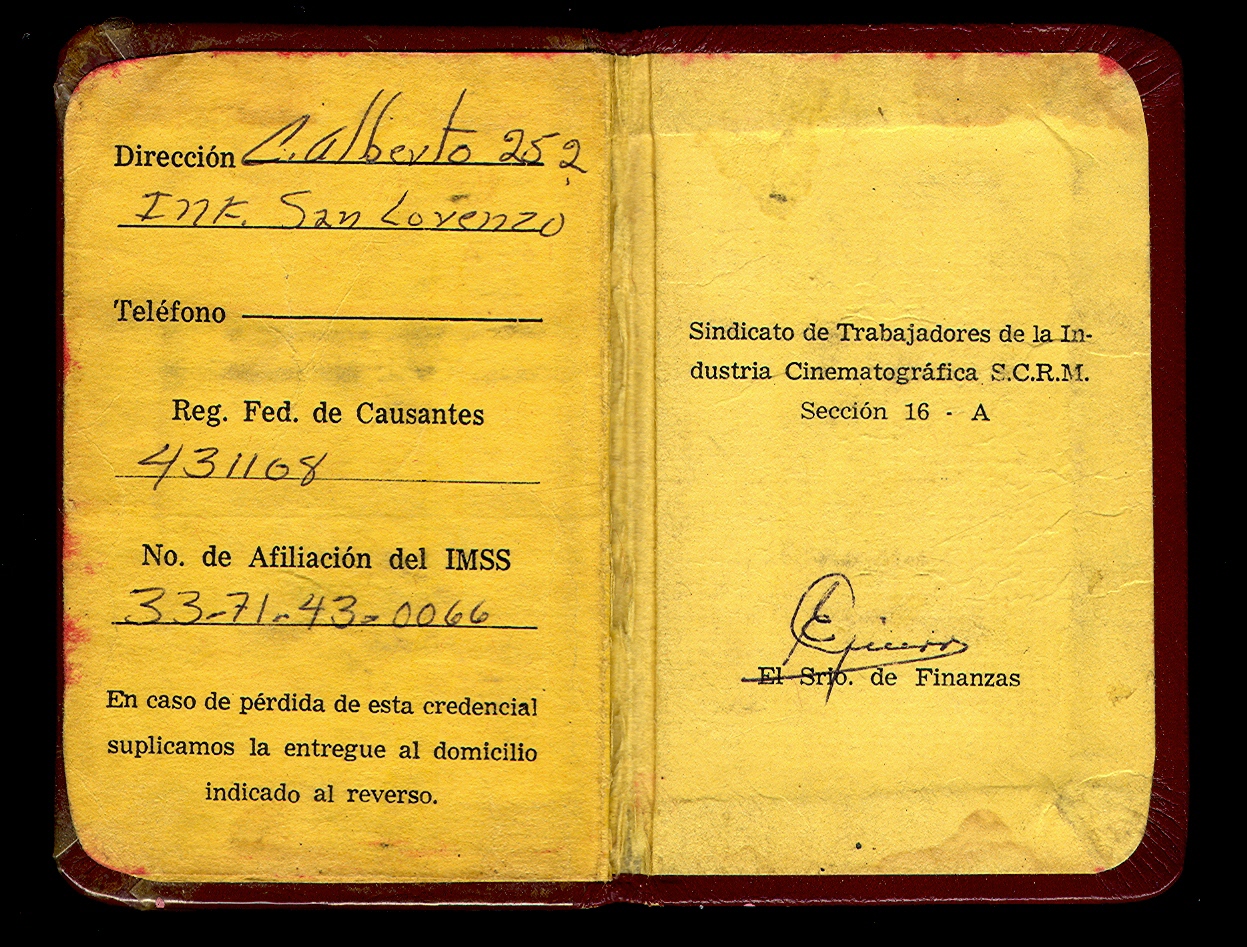 Dirección C. Alberto 252
Inf. San Lorenzo
Teléfono
Reg. Fed. de Causantes
431108
No. de Afiliación del IMSS
33-71-43-0066
En caso de pérdida de esta credencial
suplicamos la entregue al domicilio
indicado al reverso.
Sindicato de Trabajadores de la In-
dustria Cinematográfica S.C.R.M.
Sección 16 - A
El Srio. de Finanzas